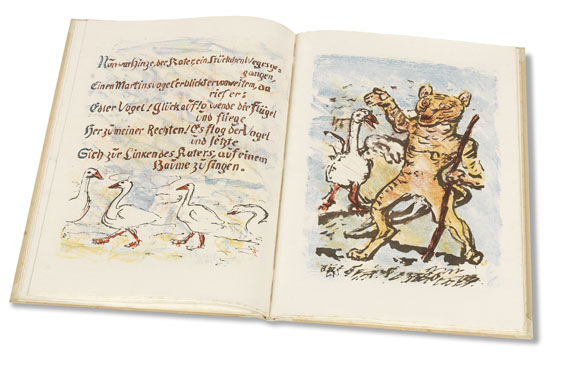 Nun war Hinze, der Kater, ein Stückchen Weges ge=
gangen,
Einen Martinsvogel erblickt er von weiten, da
rief er:
Edler Vogel! Glück auf! o wende die Flügel
und fliege
Her zu meiner Rechten! Es flog der Vogel
und setzte
Sich zur Linken des Katers, auf einem
Baume zu singen.